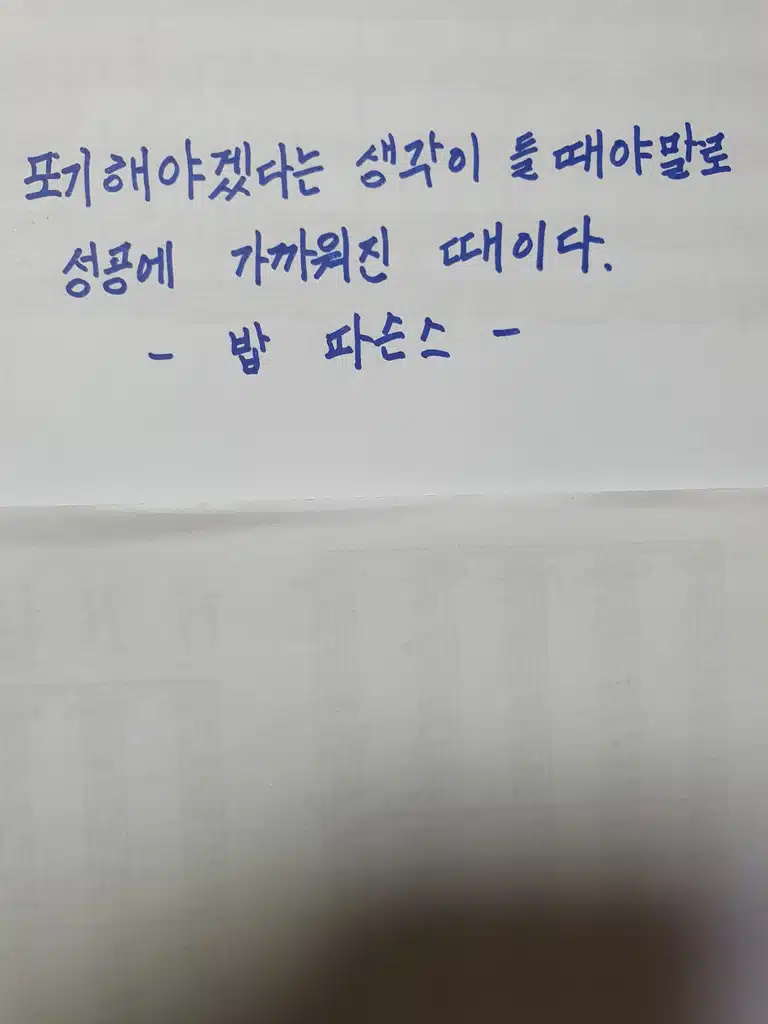 포기해야겠다는 생각이 들 때야말로
성공에 가까워진 때이다.
- 밥 파슨스 -